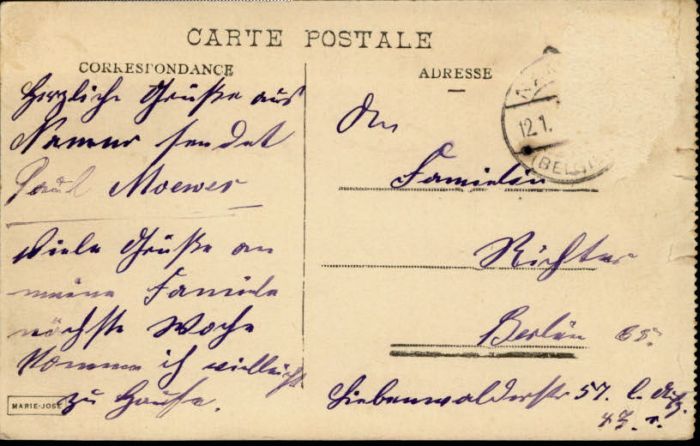 CARTE POSTALE
CORRESPONDANCE
ADRESSE
Herzliche Grüße aus
Namur sendet
Paul Moewes
Viele Grüße an
meine Familie
nächste Woche
komme ich vielleicht
zu Hause.
MARIE-JOSÉ
12.1.
(BELGI
An
Familie
Richter
Berlin
Liebenwalderstr 57.